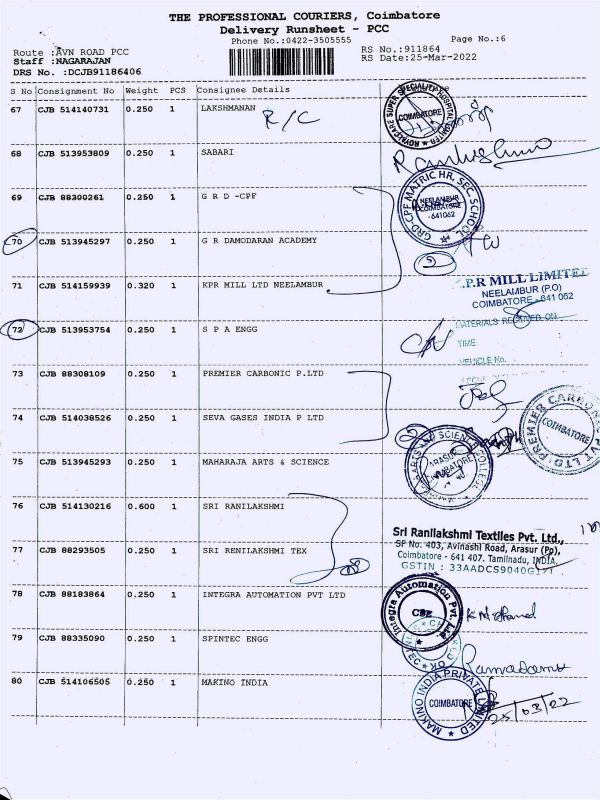 THE PROFESSIONAL COURIERS, Coimbatore
Delivery Runsheet - PCC
Phone No.:0422-3505555
Page No.:6
Route :AVN ROAD PCC
RS No.:911864
Staff :NAGARAJAN
RS Date:25-Mar-2022
DRS No. :DCJB91186406
S No Consignment No Weight PCS Consignee Details
67 CJB 514140731 0.250 1 LAKSHMANAN
R/C
COIMBATORE
68 CJB 513953809 0.250 1 SABARI
69 CJB 88300261 0.250 1 G R D -CPF
GRD-CPF MATRIC HR. SEC. SCHOOL
NEELAMBUR
COIMBATORE
-641062
70 CJB 513945297 0.250 1 G R DAMODARAN ACADEMY
2
71 CJB 514159939 0.320 1 KPR MILL LTD NEELAMBUR
P.R MILL LIMITED
NEELAMBUR (P.O)
COIMBATORE - 641 062
MATERIALS RECEIVED ON
TIME
VEHICLE No.
72 CJB 513953754 0.250 1 S P A ENGG
73 CJB 88308109 0.250 1 PREMIER CARBONIC P.LTD
COIMBATORE
74 CJB 514038526 0.250 1 SEVA GASES INDIA P LTD
75 CJB 513945293 0.250 1 MAHARAJA ARTS & SCIENCE
76 CJB 514130216 0.600 1 SRI RANILAKSHMI
Sri Ranilakshmi Textiles Pvt. Ltd.,
SF No. 403, Avinashi Road, Arasur (Po),
Coimbatore - 641 407. Tamilnadu, INDIA.
GSTIN : 33AADCS9040G
77 CJB 88293505 0.250 1 SRI RENILAKSHMI TEX
78 CJB 88183864 0.250 1 INTEGRA AUTOMATION PVT LTD
Integra Automation Pvt. Ltd.
CBE
79 CJB 88335090 0.250 1 SPINTEC ENGG
80 CJB 514106505 0.250 1 MAKINO INDIA
MAKINO INDIA PRIVATE LIMITED
COIMBATORE
25/03/22